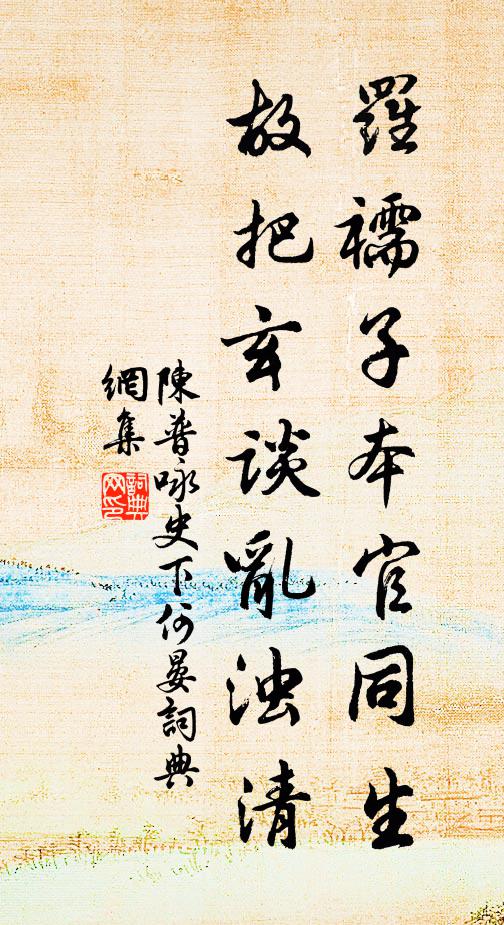 羅襦子本官同生
故把玄談亂浊清
陳普咏史下何晏詞典
網集
詞典
网印